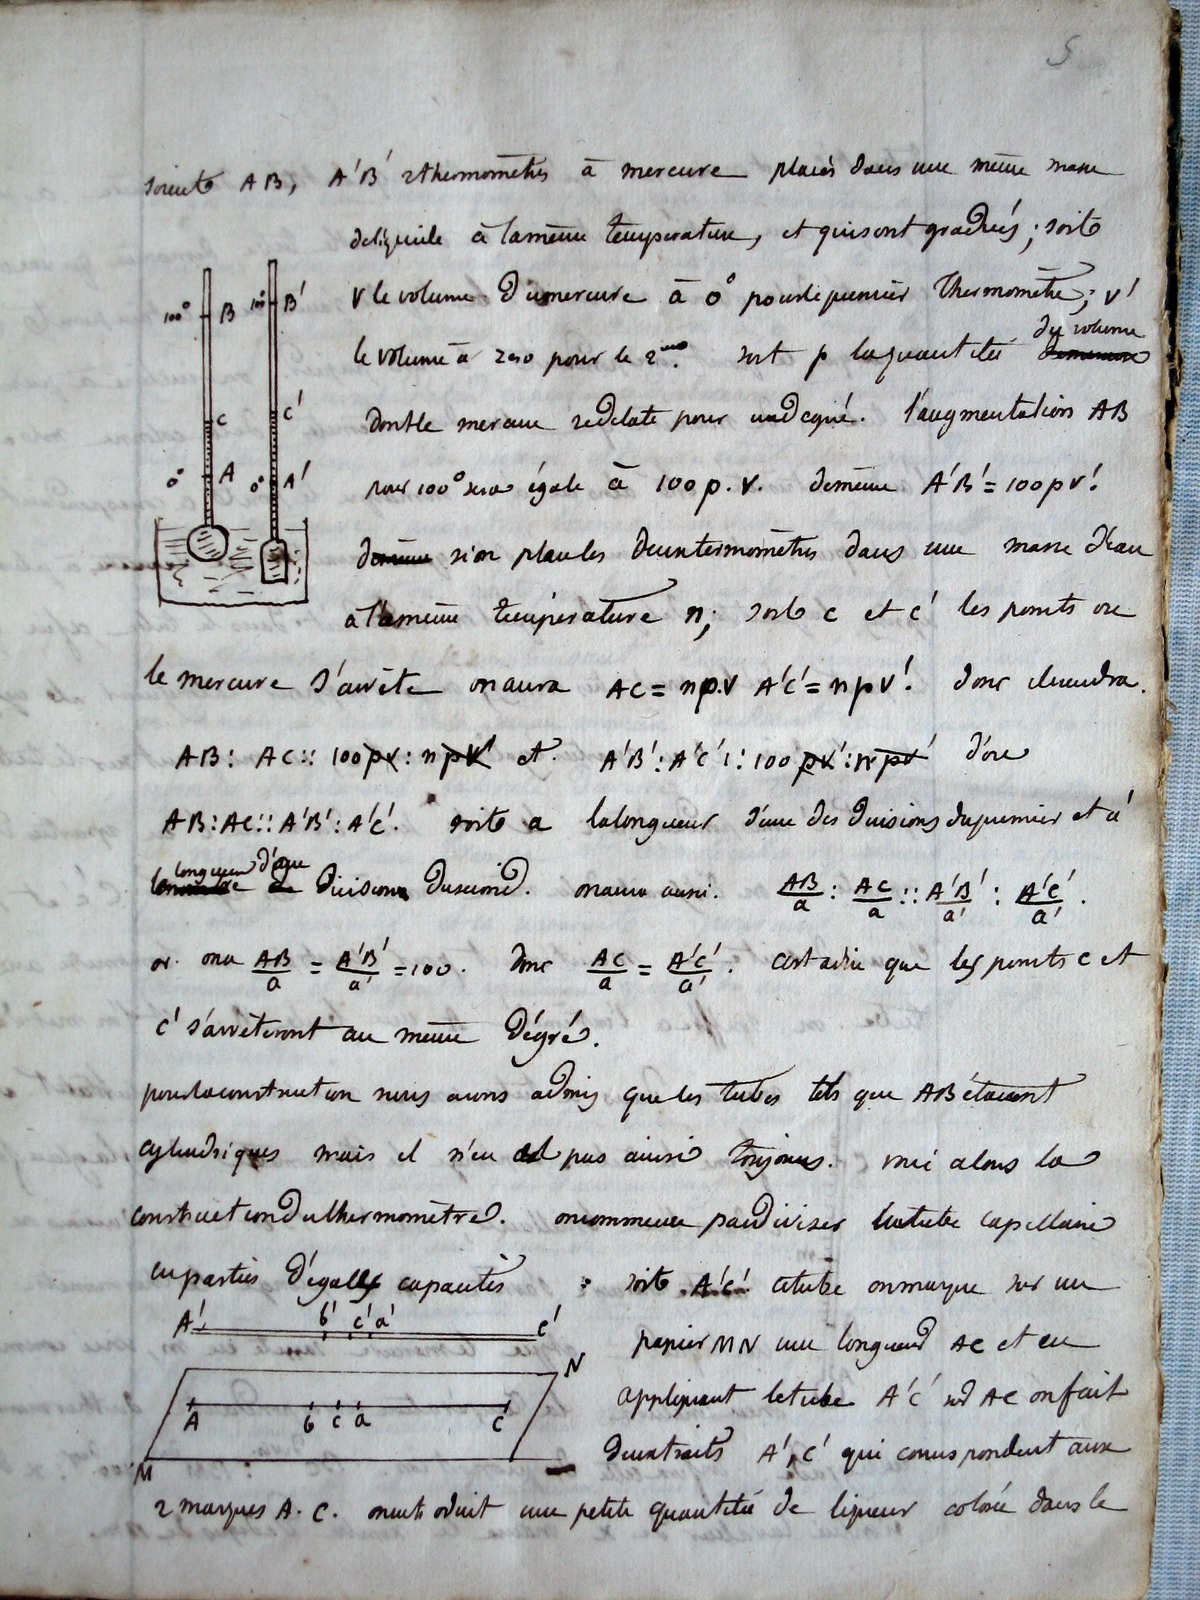 5
soient AB, A'B' 2 thermomètres à mercure placés dans une même masse
de liquide à la même température, et qui sont gradués ; soit
V le volume du mercure à 0° pour le premier thermomètre ; V'
le volume à zero pour le 2me. soit p la quantité du volume
dont le mercure se dilate pour un degré. l'augmentation AB
pour 100° sera égale à 100 p. V. de même A'B' = 100 p V'.
de même si on place les deux termomètres dans une masse d'eau
à la même température n; soit C et C' les points où
le mercure s'arrête on aura AC = np.V A'C' = npV'. donc il viendra.
AB : AC :: 100 pV : n pV et A'B' : A'C' :: 100 pV' : n pV' d'où
AB : AC :: A'B' : A'C'. soit a la longueur d'une des divisions du premier et a'
longueur d'une division du second. on aura aussi. AB/a : AC/a :: A'B'/a' : A'C'/a' .
or on a AB/a = A'B'/a' = 100. donc AC/a = A'C'/a' . c'est à dire que les points C et
C' s'arrêteront au même dégré.
pour la construction nous avons admis que les tubes tels que AB étaient
cylindriques mais il n'en est pas ainsi toujours. voici alors la
construction du thermomètre. on commence par diviser le tube capillaire
en parties d'égales capacités
soit A'C' ce tube on marque sur un
papier MN une longueur AC et en
appliquant le tube A'C' sur AC on fait
deux traits A', C' qui correspondent aux
2 marques A. C. on introduit une petite quantité de liqueur colorée dans le
100° B 100° B'
C C'
0° A 0° A'
A' b' c' a' C'
N
A b c a C
M